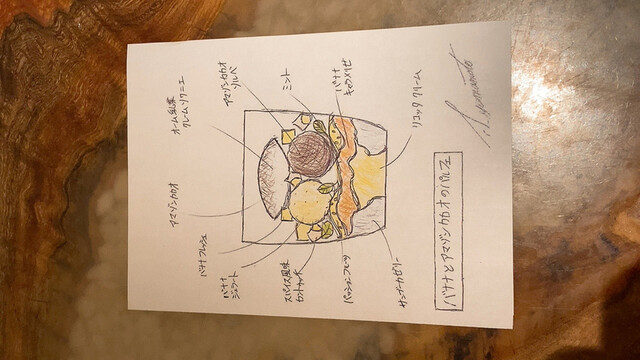 アマゾンカカオ
バナナフレッシュ
バナナ
ジェラート
スパイス風味
パッションフルーツ
サンブーカゼリー
風味
アマゾンカカオ
ソルベ
ミント
バナナ
キャラメリゼ
リコッタクリーム
バナナとアマゾンカカオのパルフェ